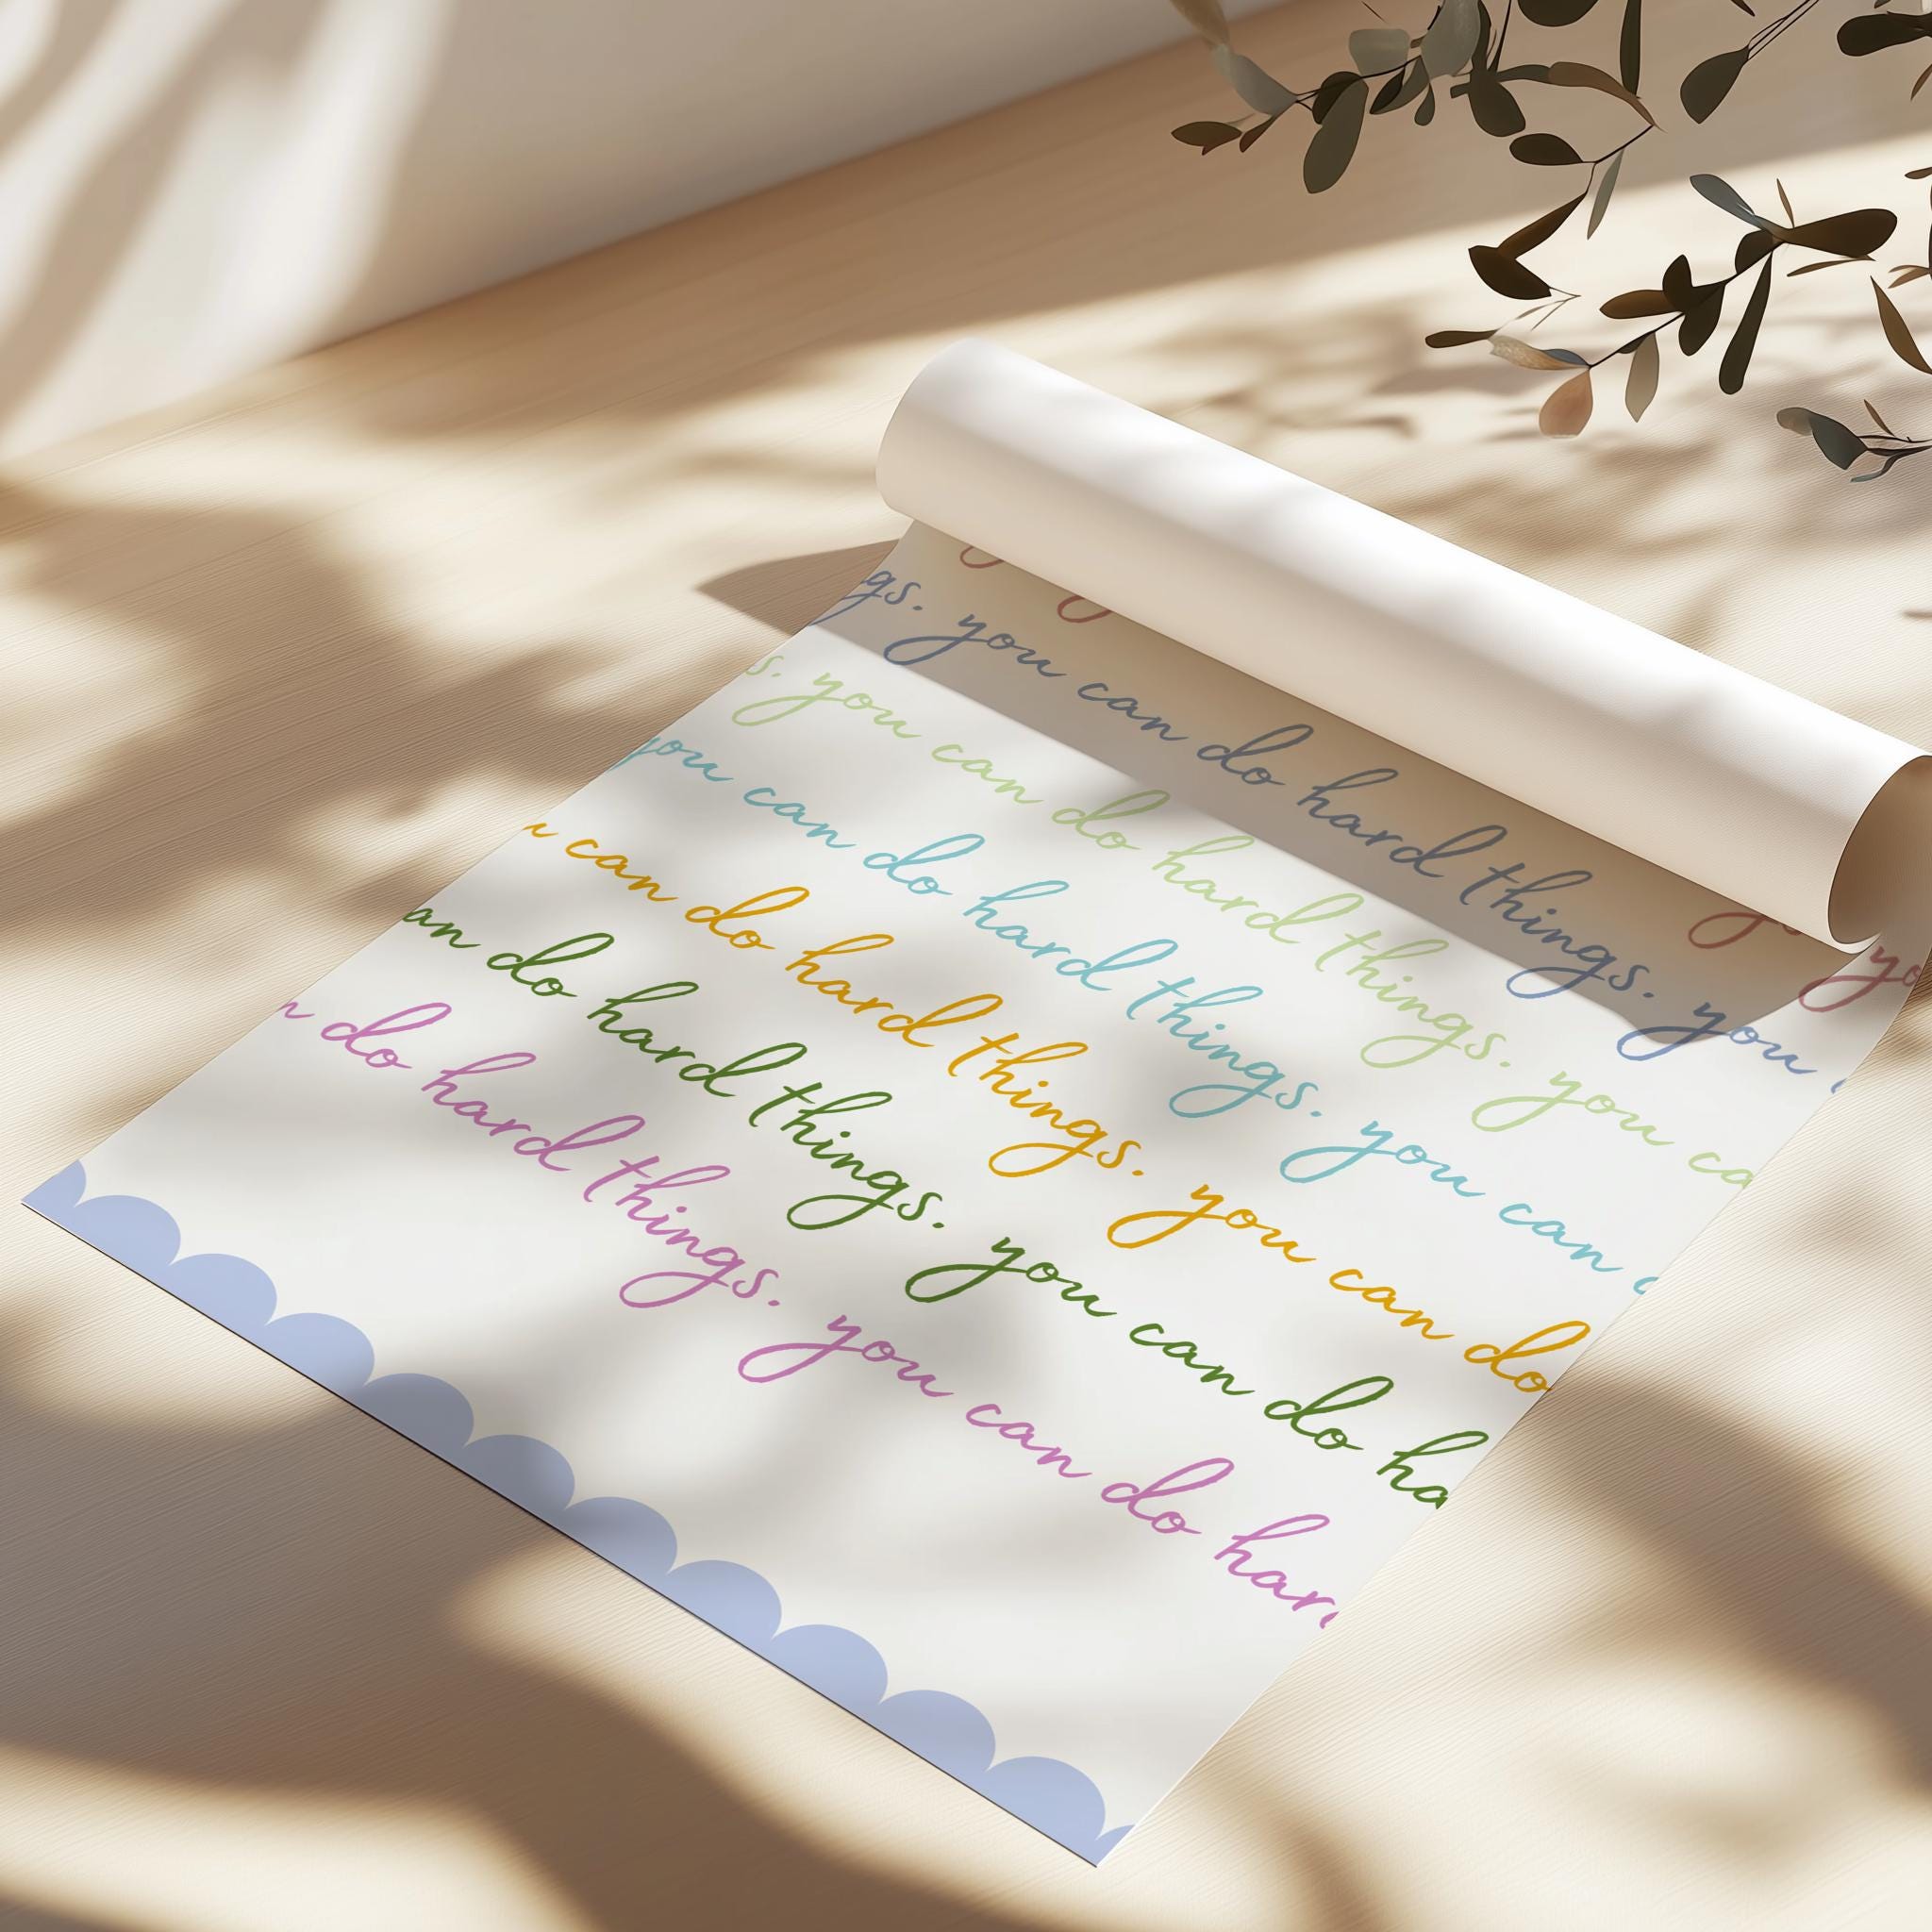 gs. you can do hard things. you
s. you can do hard things. you ca
you can do hard things. you can
can do hard things. you can do
an do hard things. you can do ha
do hard things. you can do har